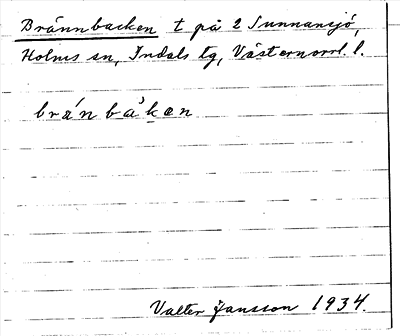 Brännbacken t på 2 Sunnansjö,
Holms sn, Indals tg, Västernorrl. l.
bránbàken
Valter Jansson 1934.